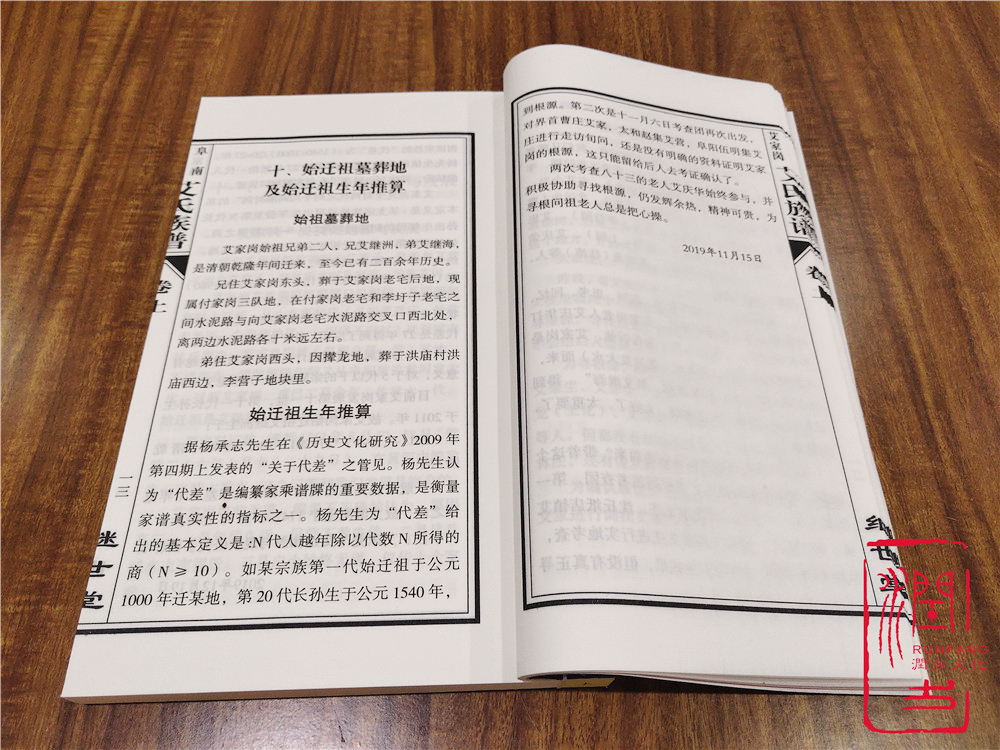 阜南
艾氏族谱
卷上
一三
继世堂
十、始迁祖墓葬地
及始迁祖生年推算
始祖墓葬地
艾家岗始祖兄弟二人，兄艾继洲，弟艾继海，
是清朝乾隆年间迁来，至今已有二百余年历史。
兄住艾家岗东头，葬于艾家岗老宅后地，现
属付家岗三队地，在付家岗老宅和李圩子老宅之
间水泥路与向艾家岗老宅水泥路交叉口西北处，
离两边水泥路各十米远左右。
弟住艾家岗西头，因撵龙地，葬于洪庙村洪
庙西边，李营子地块里。
始迁祖生年推算
据杨承志先生在《历史文化研究》2009年
第四期上发表的“关于代差”之管见。杨先生认
为“代差”是编纂家乘谱牒的重要数据，是衡量
家谱真实性的指标之一。杨先生为“代差”给
出的基本定义是:N代人越年除以代数N所得的
商（N≥10）。如某宗族第一代始迁祖于公元
1000年迁某地，第20代长孙生于公元1540年，
到根源。第二次是十一月六日考查团再次出发，
对界首曹庄艾家，太和赵集艾营，阜阳伍明集艾
庄进行走访旬问，还是没有明确的资料证明艾家
岗的根源，这只能留给后人去考证确认了。
两次考查八十三的老人艾庆华始终参与，并
积极协助寻找根源，仍发辉余热，精神可贵，为
寻根问祖老人总是把心操。
2019年11月15日
艾家岗
艾氏族谱
卷上
继世堂
RUNFANG